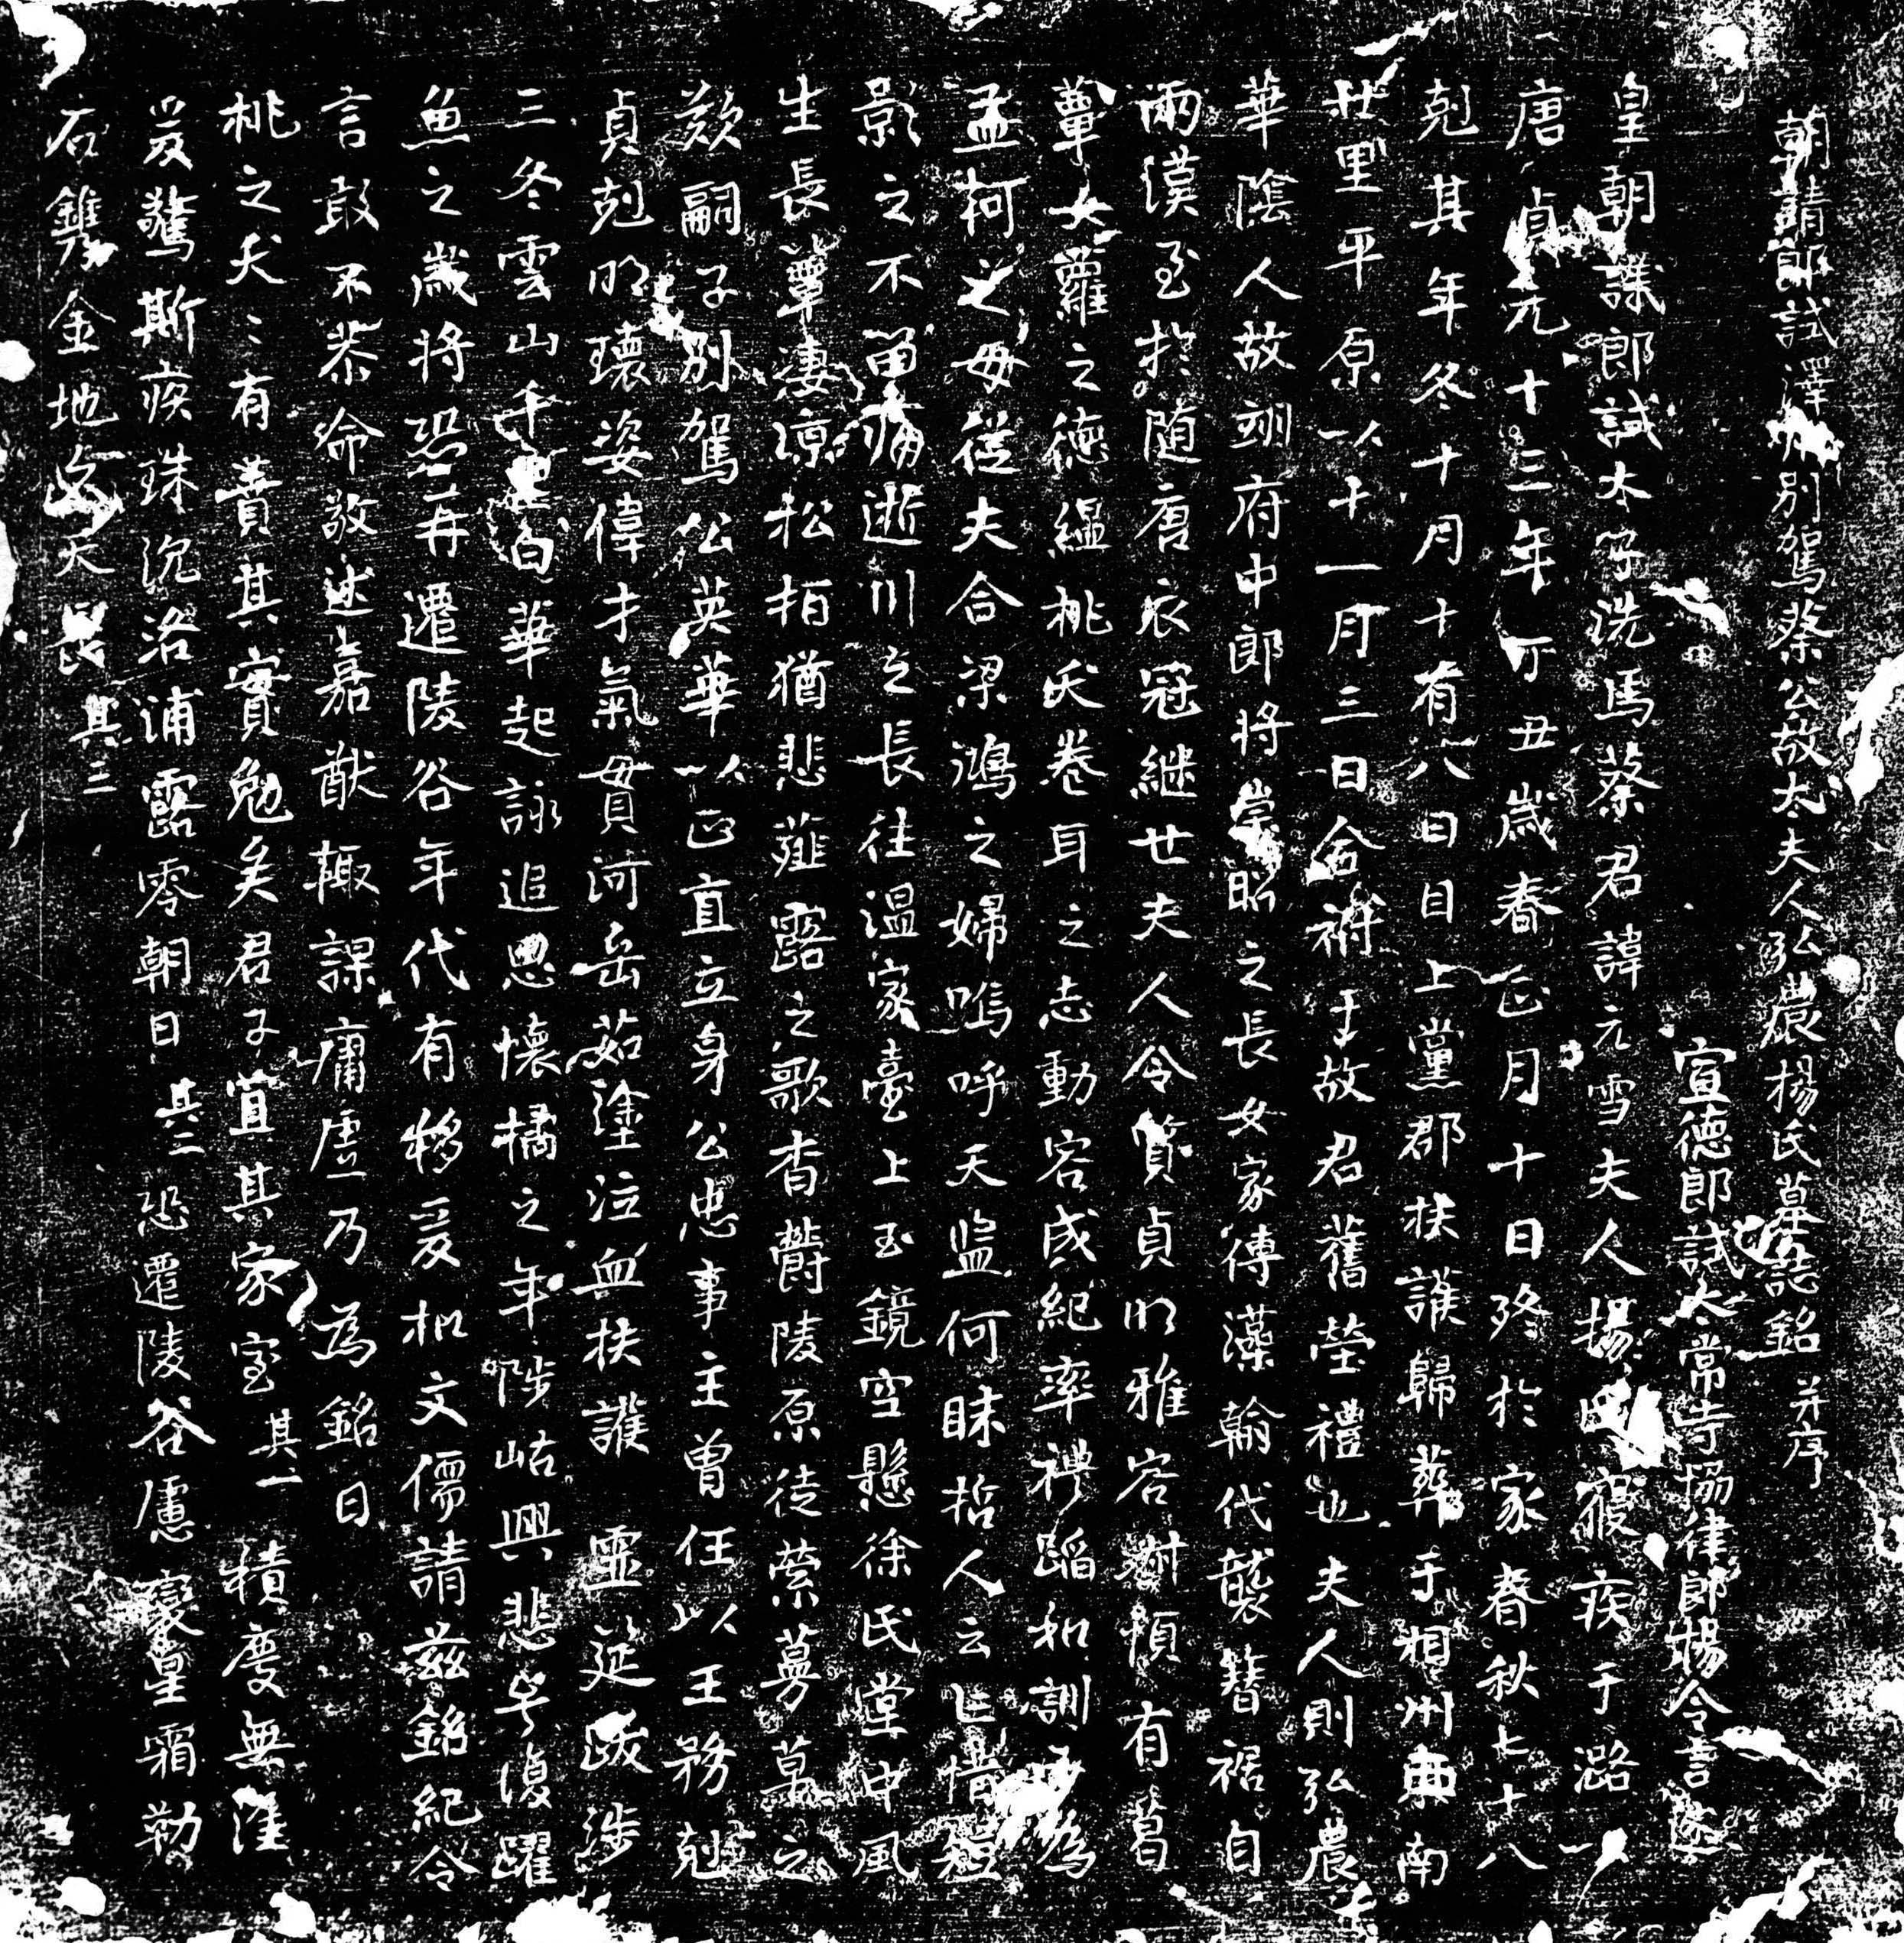 朝請郎試澤州別駕蔡公故太夫人弘農楊氏墓誌銘 并序
宣德郎試太常寺協律郎楊令言述
皇朝議郎試太子洗馬蔡君諱元雪夫人楊氏寢疾于潞以
唐貞元十三年丁丑歲春正月十日終於家春秋七十八
剋其年冬十月十有八日自上黨郡扶護歸葬于相州東南
壯里平原以十一月三日合祔于故君舊塋禮也夫人則弘農
華陰人故翊府中郎將崇昭之長女家傳藻翰代襲簪裾自
兩漢至於隨唐衣冠継世夫人令質貞明雅容淑慎有葛
蕈女蘿之德縕桃夭卷耳之志動容成紀率禮蹈和訓子為
孟柯之母從夫合梁鴻之婦嗚呼天監何昧哲人云亡惜短
影之不留痛逝川之長往溫家臺上玉鏡空懸徐氏堂中風
生長簟凄凉松栢猶悲薤露之歌杳欝陵原徒縈蔓草之
歎嗣子別駕公英華以正直立身公忠事主曾任以王務剋
貞剋明瓌姿偉才氣貫河岳茹塗泣血扶護 靈筵跋涉
三冬雲山千里白華起詠追思懷橘之年陟岵興悲每復躍
魚之歲將恐再遷陵谷年代有移爰扣文儒請茲銘紀令
言敢不恭命敬述嘉猷輙課庸虛乃為銘曰
桃之夭〻有蕡其實勉矣君子宜其家室 其一 積慶無隆
爰驚斯疾珠沉洛浦露零朝日 其二 恐遷陵谷慮變星霜勒
石鐫金地久天長 其三